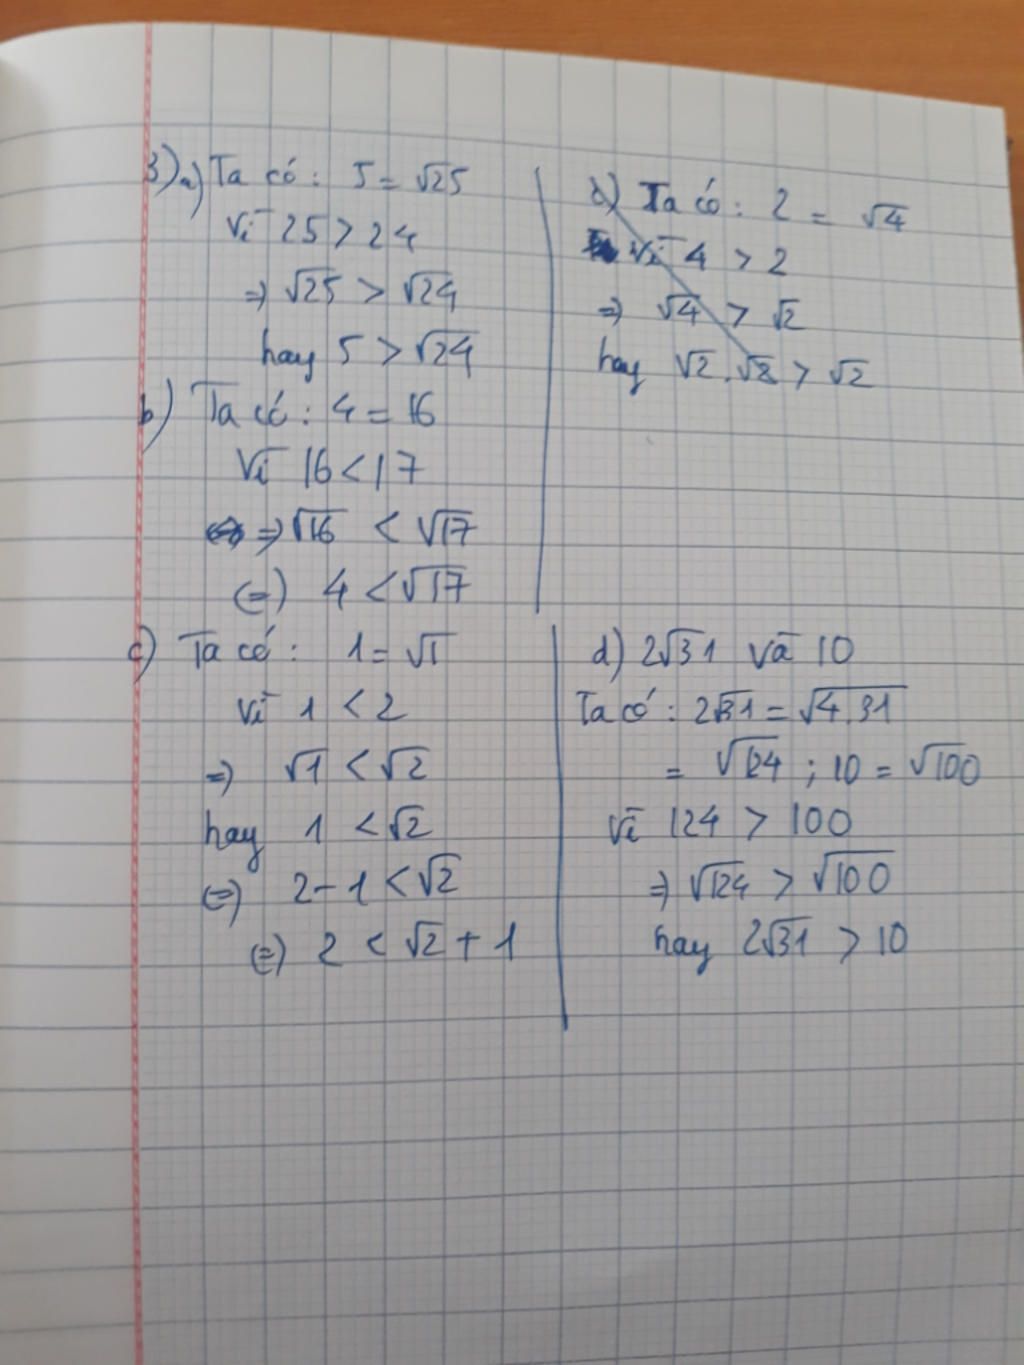 3) a) Ta có: 5 = √25
Vì 25 > 24
=> √25 > √24
hay 5 > √24
b) Ta có: 4 = 16
Vì 16 < 17
=> √16 < √17
(=) 4 < √17
c) Ta có: 1 = √1
Vì 1 < 2
=> √1 < √2
hay 1 < √2
(=) 2 - 1 < √2
(=) 2 < √2 + 1
d) Ta có: 2 = √4
Vì 4 > 2
=> √4 > √2
hay √2.√2 > √2
d) 2√31 và 10
Ta có: 2√31 = √4.31
= √124 ; 10 = √100
Vì 124 > 100
=> √124 > √100
hay 2√31 > 10